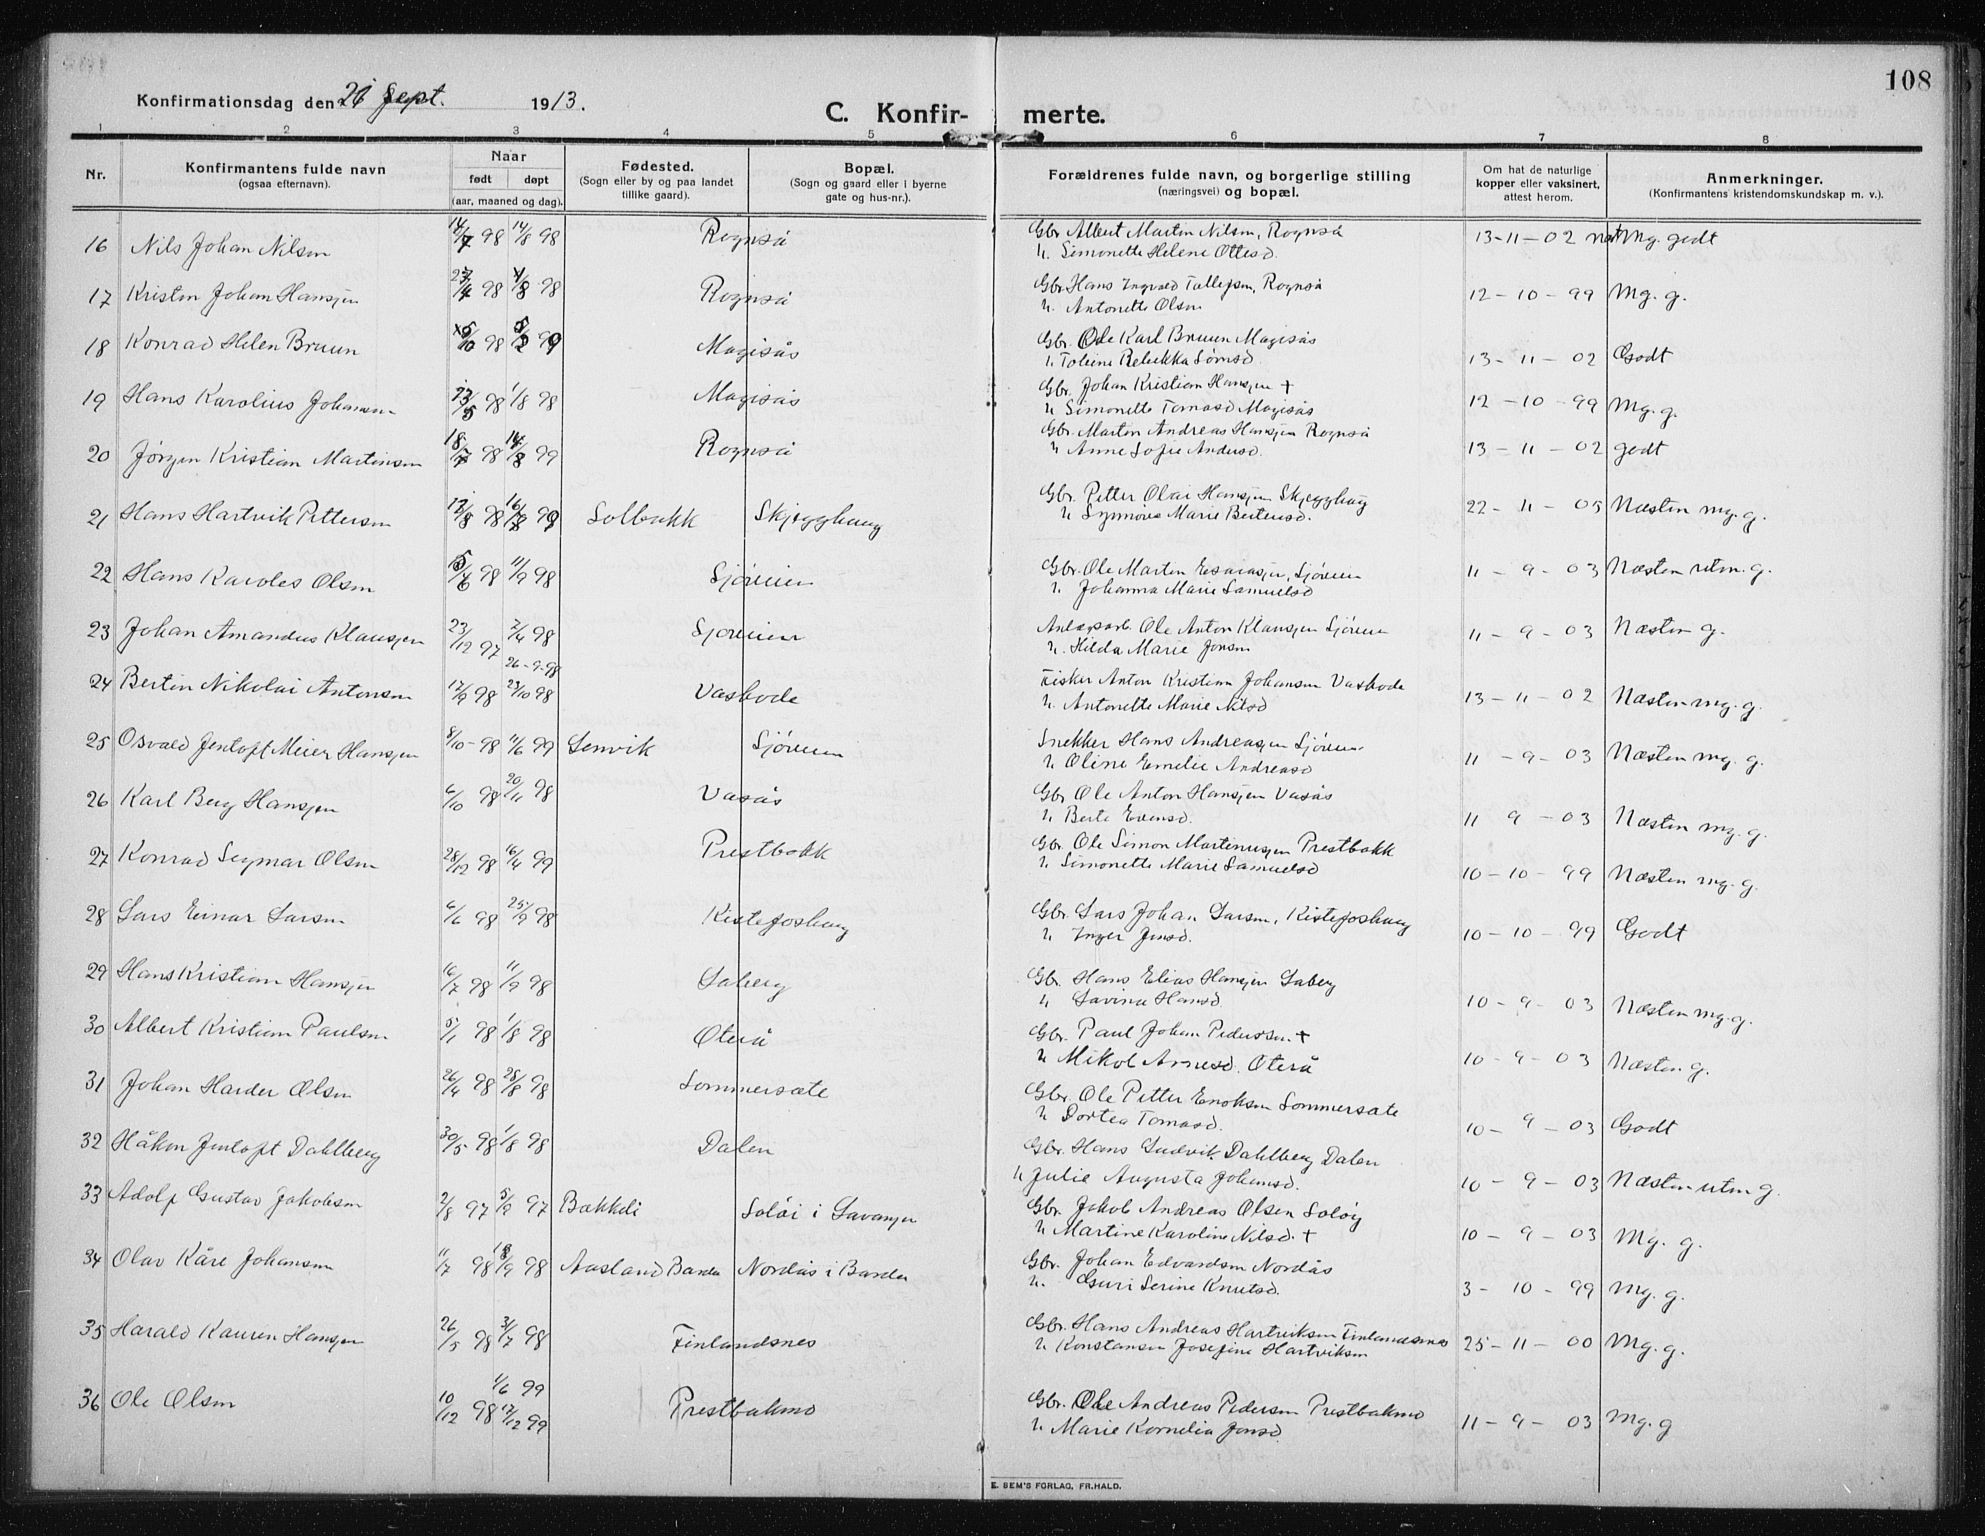 108
Konfirmationsdag den 21 Sept. 1913.
C. Konfir- merte.
1 2 3 4 5 6 7 8
Nr.
Konfirmantens fulde navn
(ogsaa efternavn).
Naar
født døpt
(aar, maaned og dag).
Fødested.
(Sogn eller by og paa landet
tillike gaard).
Bopæl.
(Sogn og gaard eller i byerne
gate og hus-nr.).
Forældrenes fulde navn, og borgerlige stilling
(næringsvei) og bopæl.
Om hat de naturlige
kopper eller vaksinert,
attest herom.
Anmerkninger.
(Konfirmantens kristendomskundskap m. v.).
16 Nils Johan Nilsen 98 14/8 98 Rognså Gbr Albert Martin Nilsen, Rognså 13-11-02 Mg. godt
h. Simonette Helene Ottesd.
17 Kristen Johan Hansjen 98 98 Rognså Gbr Hans Ingvald Tollefsen, Rognså 12-10-99 Mg. g.
h. Antonette Olsen
18 Konrad Helen Bruun 98 Magisås Gbr. Ole Karl Bruun Magisås 13-11-02 Godt
h. Rebekka
19 Hans Karolius Johansen 98 1/8 98 Magisås Gbr. Johan Kristian Hansjen + 12-10-99 Mg. g.
h Simonette Tomasd Magisås
20 Jørgen Kristian Martinsen 98 99 Rognså Gbr. Martin Andreas Hansjen Rognså 13-11-02 godt
h Anne Sofie Andersd.
21 Hans Hartvik Pettersen 98 Solbakk Skjegghaug Gbr. Petter Olai Hansjen Skjegghaug 22-11-05 Næsten mg. g.
h Marie Bertensd.
22 Hans Karoles Olsen 98 11/9 98 Sjøveien Gbr. Ole Martin Esaiasjen, Sjøveien 11-9-03 Næsten utm. g.
h. Johanna Marie Samuelsd
23 Johan Amandus Klausjen 23/12 97 2/4 98 Sjøveien Anlægsarb. Ole Anton Klausjen Sjøveien 11-9-03 Næsten g.
h. Hilda Marie Jensen
26-9-98
24 Bertin Nikolai Antonsen 12/9 98 23/10 98 Vasbode Fisker Anton Kristian Johansen Vasbode 13-11-02 Næsten mg. g.
h. Antonette Marie Nilsd
25 Osvald Jentoft Meier Hansjen 8/10-98 11/6 99 Lenvik Sjøveien Snekker Hans Andreasjen Sjøveien 11-9-03 Næsten mg. g.
h Oline Emelie Andreasd
26 Karl Berg Hansjen 6/10 98 20/11 98 Vasås Gbr Ole Anton Hansjen Vasås 11 9-03 Næsten mg. g.
h Berte Evensd.
27 Konrad Segmar Olsen 28/12 98 16/4 99 Prestbakk Gbr Ole Simon Martinusjen Prestbakk 10-10-99 Næsten mg. g.
h. Simonette Marie Samuelsd
28 Lars Einar Larsen 6/6 98 25/9 98 Kistefoshaug Gbr. Lars Johan Larsen, Kistefoshaug 10-10-99 Godt
h. Inger Jensd.
29 Hans Kristian Hansjen 16/7 98 11/9 98 Laberg Gbr. Hans Elias Hansjen Laberg 10-9-03 Næsten mg. g.
h Lavina Hansd
30 Albert Kristian Paulsen 5/1 98 1/8 98 Øterå Gbr. Paul Johan Pederssen + 10-9-03 Næsten g.
h Mikol Arnesd. Øterå
31 Johan Harder Olsen 26/4 98 28/8 98 Sommersæte Gbr. Ole Petter Enoksen Sommersæte 10-9-03 Godt
h Dortea Tomasd.
32 Håkon Jentoft Dahlberg 30/5 98 1/8 98 Dalen Gbr. Hans Ludvik Dahlberg Dalen 10-9-03 Næsten utm g.
h Julie Augusta Johansd.
33 Adolf Gustav Jakobsen 2/8 97 5/9 97 Bakkeli Soløi i Lavangen Gbr. Jakob Andreas Olsen Soløy 10-9-03 Mg. g.
h Martine Karoline Nilsd. +
34 Olav Kåre Johansen 11/7 98 98 Aasland Bardu Nordås i Bardu Gbr. Johan Edvardsen Nordås 3-10-99 Mg. g.
h. Guri Serine Knutsd.
35 Harald Kauren Hansjen 26/5 98 31/7 98 Finlandsnes Gbr. Hans Andreas Hartviksen Finlandsnes 25-11-00 Mg. g.
h Konstanse Josefine Hartviksen
36 Ole Olsen 10/12 98 1/6 99 17/12 99 Prestbakmo Gbr. Ole Andreas Pedersen Prestbakmo 11-9-03 Mg. g
h. Marie Kornelia Jensd
E. SEM'S FORLAG, FR.HALD.